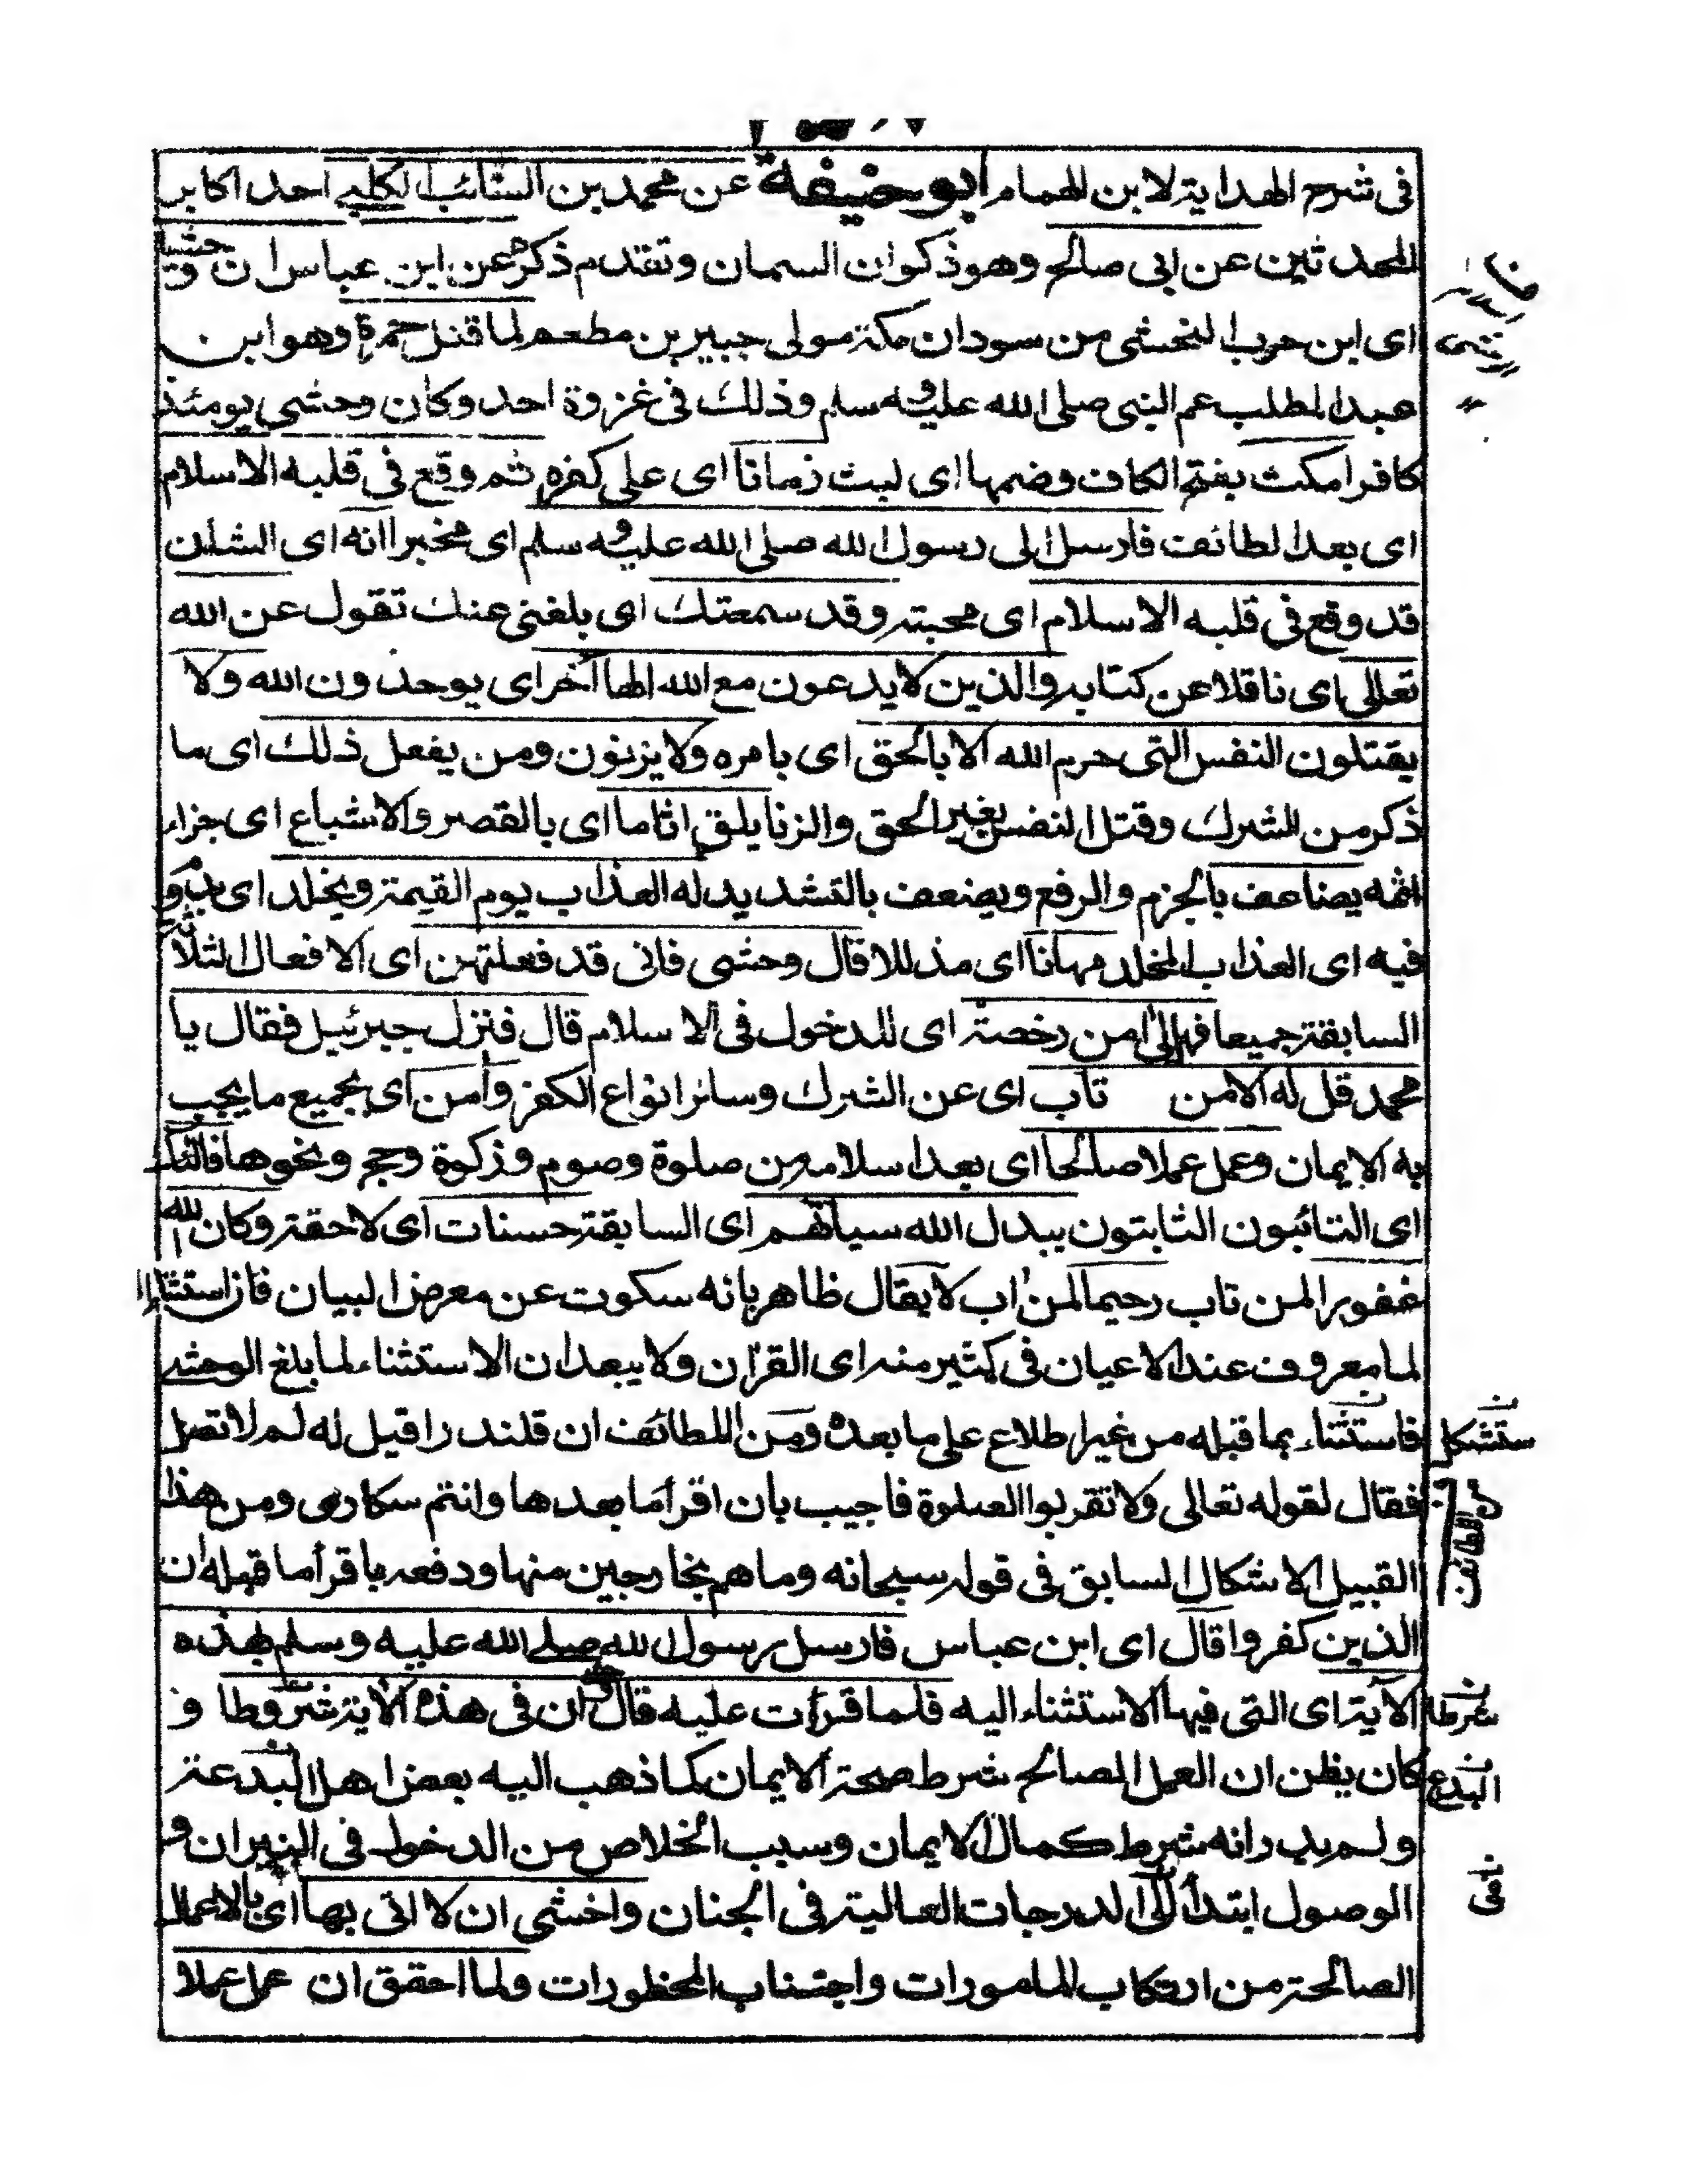 فى شرح الهداية لابن الهمام ابو حنيفة عن محمد بن السائب الكلبي احد اكابر
المحدثين عن ابى صالح وهو ذكوان السمان وتقدم ذكره عن ابن عباس ان وحشيا
اى ابن حرب الحبشى من سودان مكة مولى جبير بن مطعم لما قتل حمزة وهو ابن
عبد المطلب عم النبى صلى الله عليه وسلم وذلك فى غزوة احد وكان وحشى يومئذ
كافرا مكث بفتح الكاف وضمها اى لبث زمانا اى على كفره ثم وقع فى قلبه الاسلام
اى بعد الطائف فارسل الى رسول الله صلى الله عليه وسلم اى مخبرا انه اى الشان
قد وقع فى قلبه الاسلام اى محبته وقد سمعتك اى بلغنى عنك تقول عن الله
تعالى اى ناقلا عن كتابه والذين لا يدعون مع الله الها آخر اى يوحدون الله ولا
يقتلون النفس التى حرم الله الا بالحق اى بامره ولا يزنون ومن يفعل ذلك اى ما
ذكر من الشرك وقتل النفس بغير الحق والزنا يلق اثاما اى بالقصر والاشباع اى جزاء
اثمه يضاعف بالجزم والرفع ويضعف بالتشديد له العذاب يوم القيمة ويخلد اى
فيه اى العذاب المخلد مهانا اى مذللا قال وحشى فانى قد فعلتهن اى الافعال الثلاثة
السابقة جميعا فهل لى من رخصة اى للدخول فى الاسلام قال فنزل جبرئيل فقال يا
محمد قل له الا من تاب اى عن الشرك وسائر انواع الكفر وآمن اى بجميع ما يجب
به الايمان وعمل عملا صالحا اى بعد اسلامه من صلوة وصوم وزكوة وحج ونحوها فاولئك
اى التائبون الثابتون يبدل الله سيأتهم اى السابقة حسنات اى لاحقة وكان الله
غفورا لمن تاب رحيما لمن اب لا يقال ظاهر بانه سكوت عن معرض البيان فان استثناء
لما معروف عند الاعيان فى كثير منه اى القرآن ولا يبعد ان الاستثناء لما بلغ الوحشي
فاستثناء بما قبله من غير اطلاع على ما بعده ومن اللطائف ان قلندرا قيل له لم لا تصل
فقال لقوله تعالى ولا تقربوا الصلوة فاجيب بان اقرأ ما بعدها وانتم سكارى ومن هذا
القبيل الاشكال السابق فى قوله سبحانه وما هم بخارجين منها ودفعه باقرأ ما قبله ان
الذين كفروا قال اى ابن عباس فارسل رسول الله صلى الله عليه وسلم بهذه
الآية اى التى فيها الاستثناء اليه فلما قرأت عليه قال ان فى هذه الآية شروطا و
كان يظن ان العمل الصالح شرط صحة الايمان كما ذهب اليه بعض اهل البدعة
ولم يدر انه شرط كمال الايمان وسبب الخلاص من الدخول فى النيران و
الوصول ابتدأ الى الدرجات العالية فى الجنان واخشى ان لا اتى بها اى بالاعمال
الصالحة من ارتكاب المامورات واجتناب المحظورات ولما احقق ان عمل عملا
ستشكل
شرطا
البدع
فى